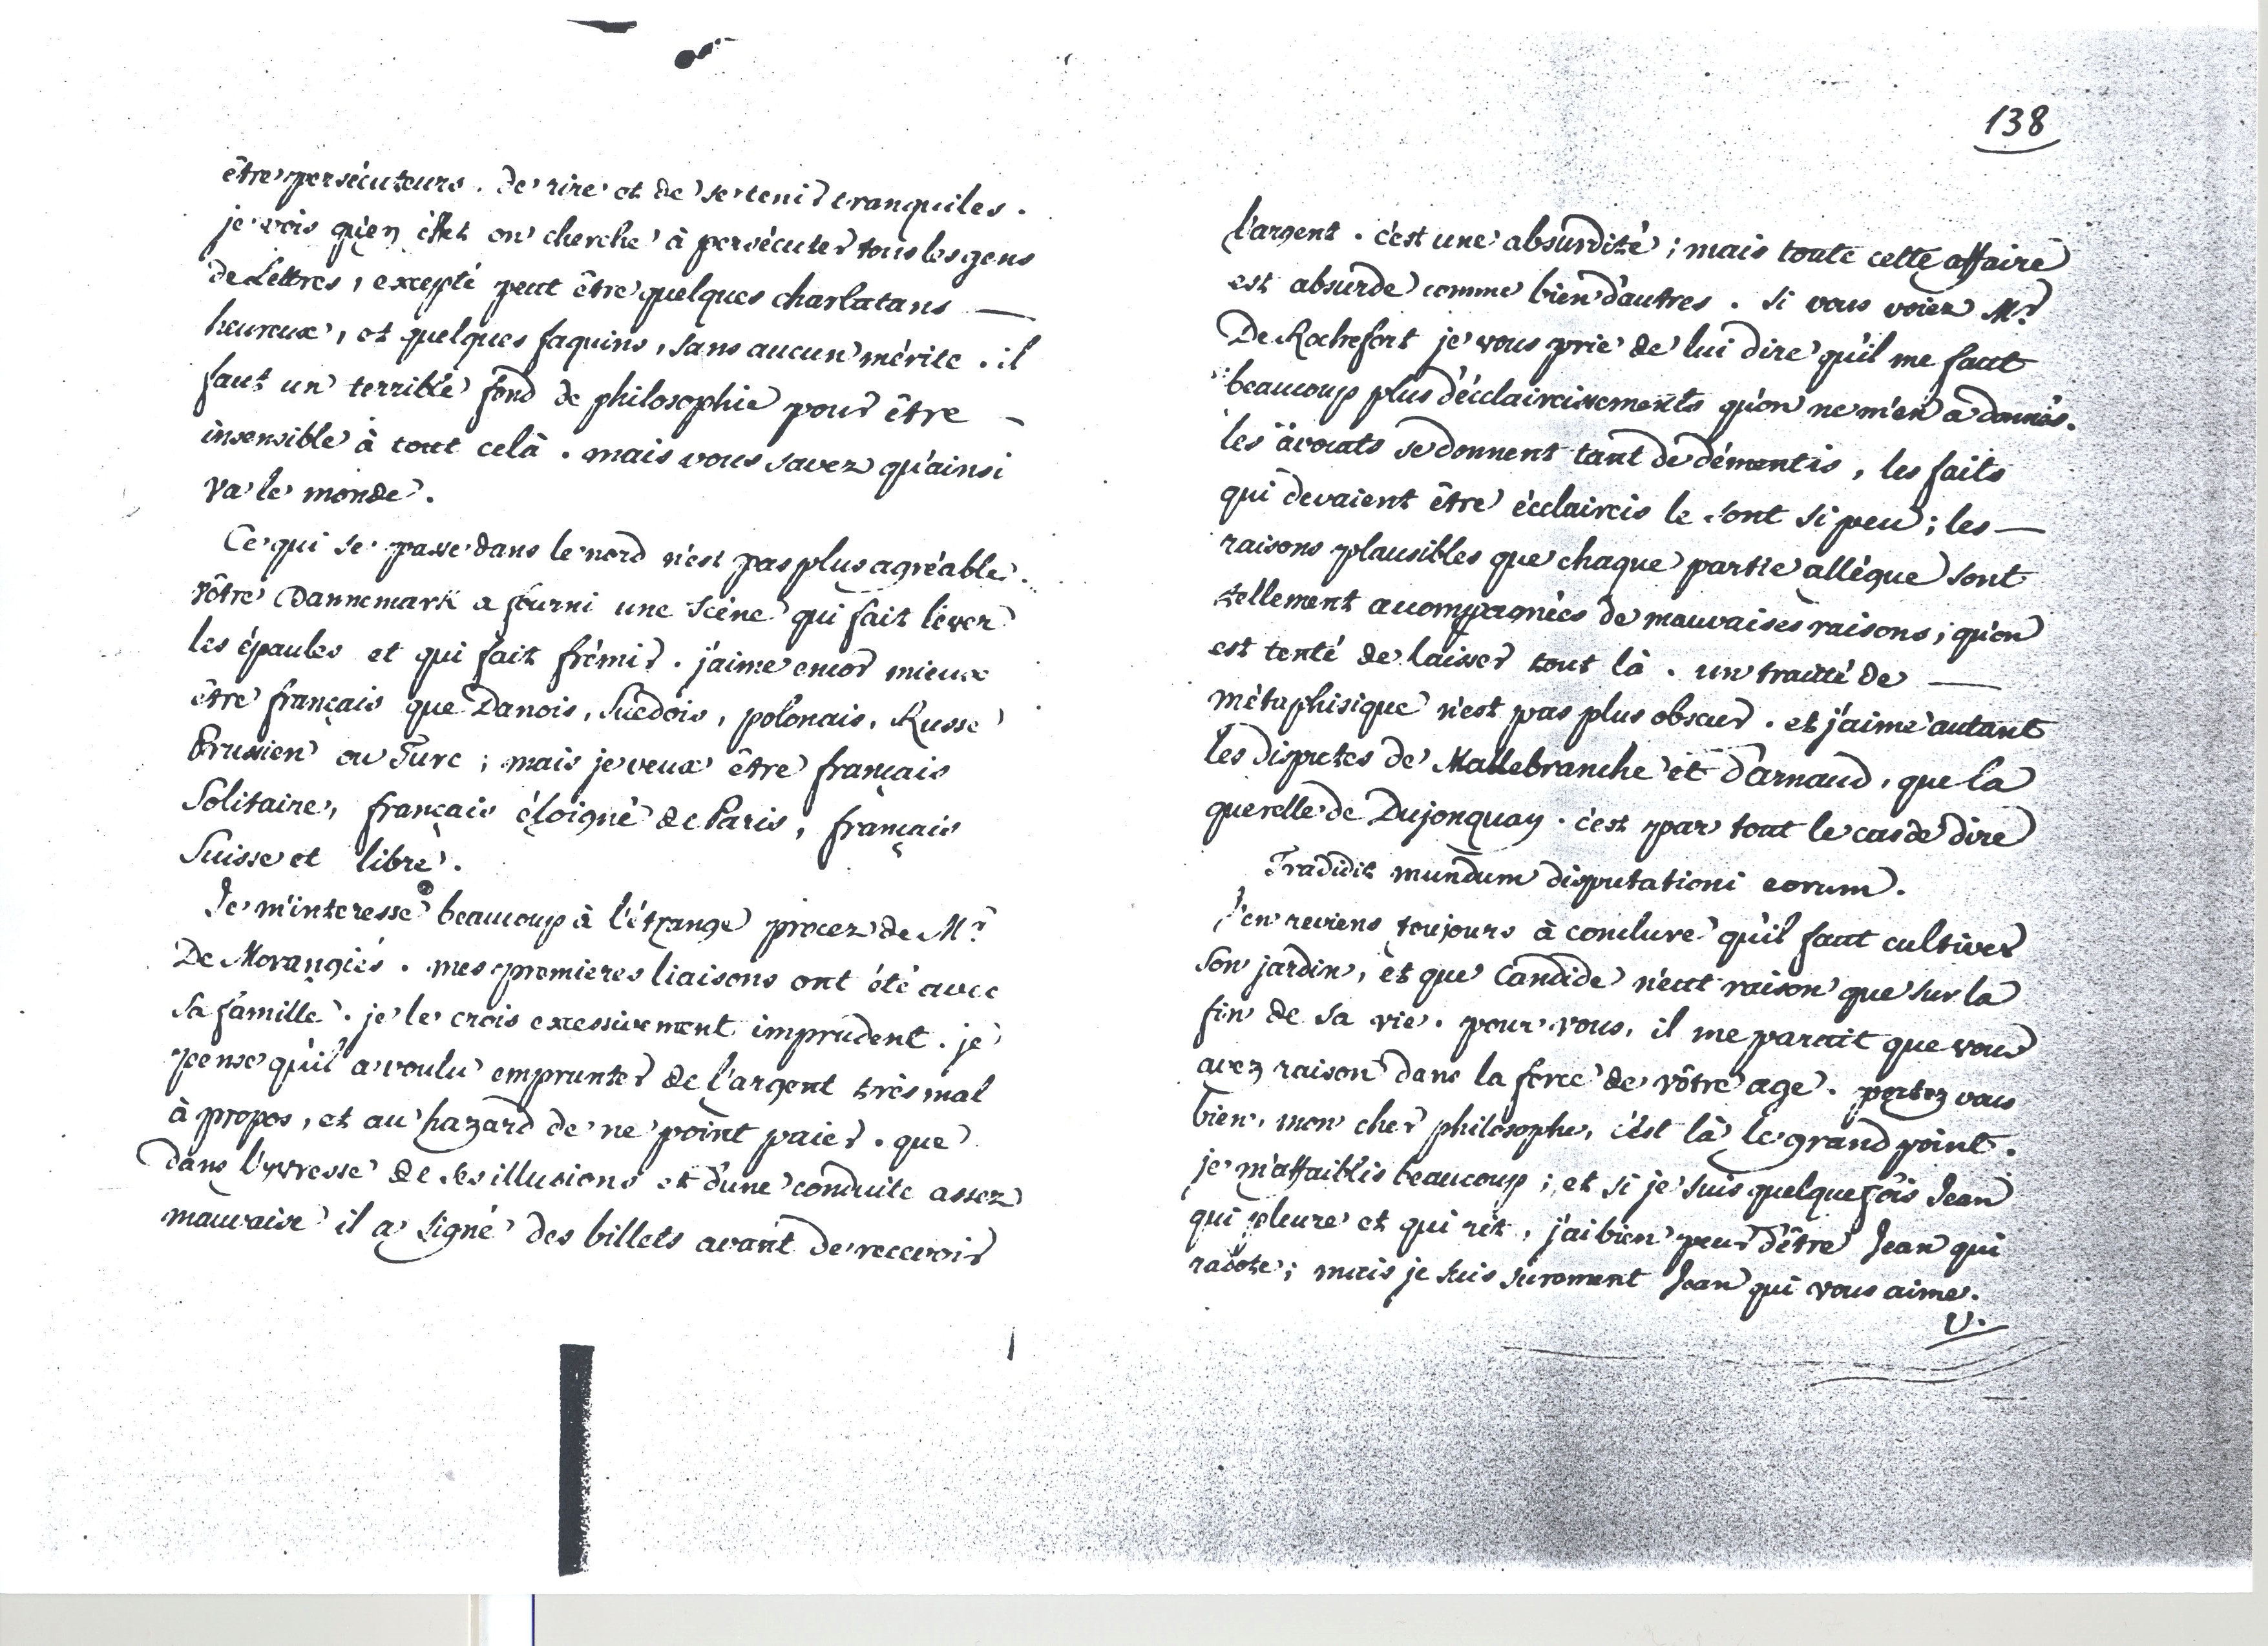 être persécuteurs. de rire et de se tenir tranquiles.
je vois qu'en éffet on cherche à persécuter tous les gens
de Lettres, excepté peut être quelques charlatans —
heureux, et quelques faquins, sans aucun mérite. il
faut un terrible fond de philosophie pour être —
insensible à tout celà. mais vous savez qu'ainsi
va le monde.
Ce qui se passe dans le nord n'est pas plus agréable.
vôtre Dannemark a fourni une scène qui fait lever
les épaules et qui fait frémir. j'aime encor mieux
être français que Danois, Suédois, polonais, Russe
Prussien ou Turc; mais je veux être français
Solitaire, français éloigné de Paris, français
Suisse et libre.
Je m'interesse beaucoup à l'étrange procez de Mr.
De Morangiés. mes premieres liaisons ont été avec
sa famille. je le crois excessivement imprudent. je
pense qu'il a voulu emprunter de l'argent très mal
à propos, et au hazard de ne point paier. que
dans l'yvresse de ses illusions et d'une conduite assez
mauvaise il a signé des billets avant de recevoir
138
l'argent. c'est une absurdité; mais toute cette affaire
est absurde comme bien d'autres. si vous voiez Mr.
De Rochefort je vous prie de lui dire qu'il me faut
beaucoup plus d'éclaircissements qu'on ne m'en a donnés.
les avocats se donnent tant de démentis, les faits
qui devaient être éclaircis le sont si peu; les —
raisons plausibles que chaque partie allègue sont
tellement acompagnées de mauvaises raisons; qu'on
est tenté de laisser tout là. un traitté de —
métaphisique n'est pas plus obscur. et j'aime autant
les disputes de Mallebranche et d'arnaud, que la
querelle de Dujonquay. c'est par tout le cas de dire
Tradidit mundum disputationi eorum.
J'en reviens toujours à conclure qu'il faut cultiver
son jardin, et que Candide n'eut raison que sur la
fin de sa vie. pour vous, il me parait que vous
avez raison dans la force de vôtre age. portez vous
bien, mon cher philosophe, c'est là le grand point.
je m'affaiblis beaucoup; et si je suis quelquefois Jean
qui pleure et qui rit, j'ai bien peur d'être Jean qui
radote; mais je suis surement Jean qui vous aime.
V.